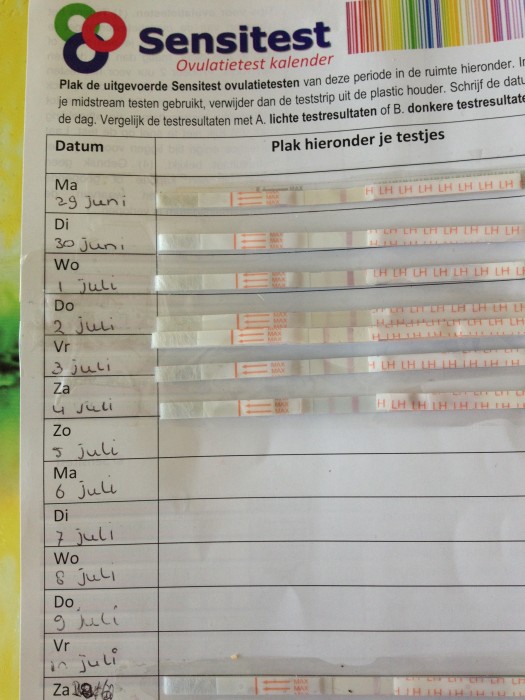 Sensitest
Ovulatietest kalender
Plak de uitgevoerde Sensitest ovulatietesten van deze periode in de ruimte hieronder. I
je midstream testen gebruikt, verwijder dan de teststrip uit de plastic houder. Schrijf de datu
de dag. Vergelijk de testresultaten met A. lichte testresultaten of B. donkere testresultate
Datum Plak hieronder je testjes
Ma
29 juni MAX MAX H LH LH LH LH LH LH LH
Di
30 juni MAX MAX MAX LH LH LH LH LH LH LH
Wo
1 juli MAX MAX LH LH LH LH LH LH LH
Do
2 juli MAX MAX MAX LH LH LH LH LH LH
Vr
3 juli MAX MAX H LH LH LH LH LH LH
Za
4 juli MAX MAX H LH LH LH LH LH LH
Zo
5 juli
Ma
6 juli
Di
7 juli
Wo
8 juli
Do
9 juli
Vr
10 juli
Za MAX MAX MAX LH LH LH LH LH LH